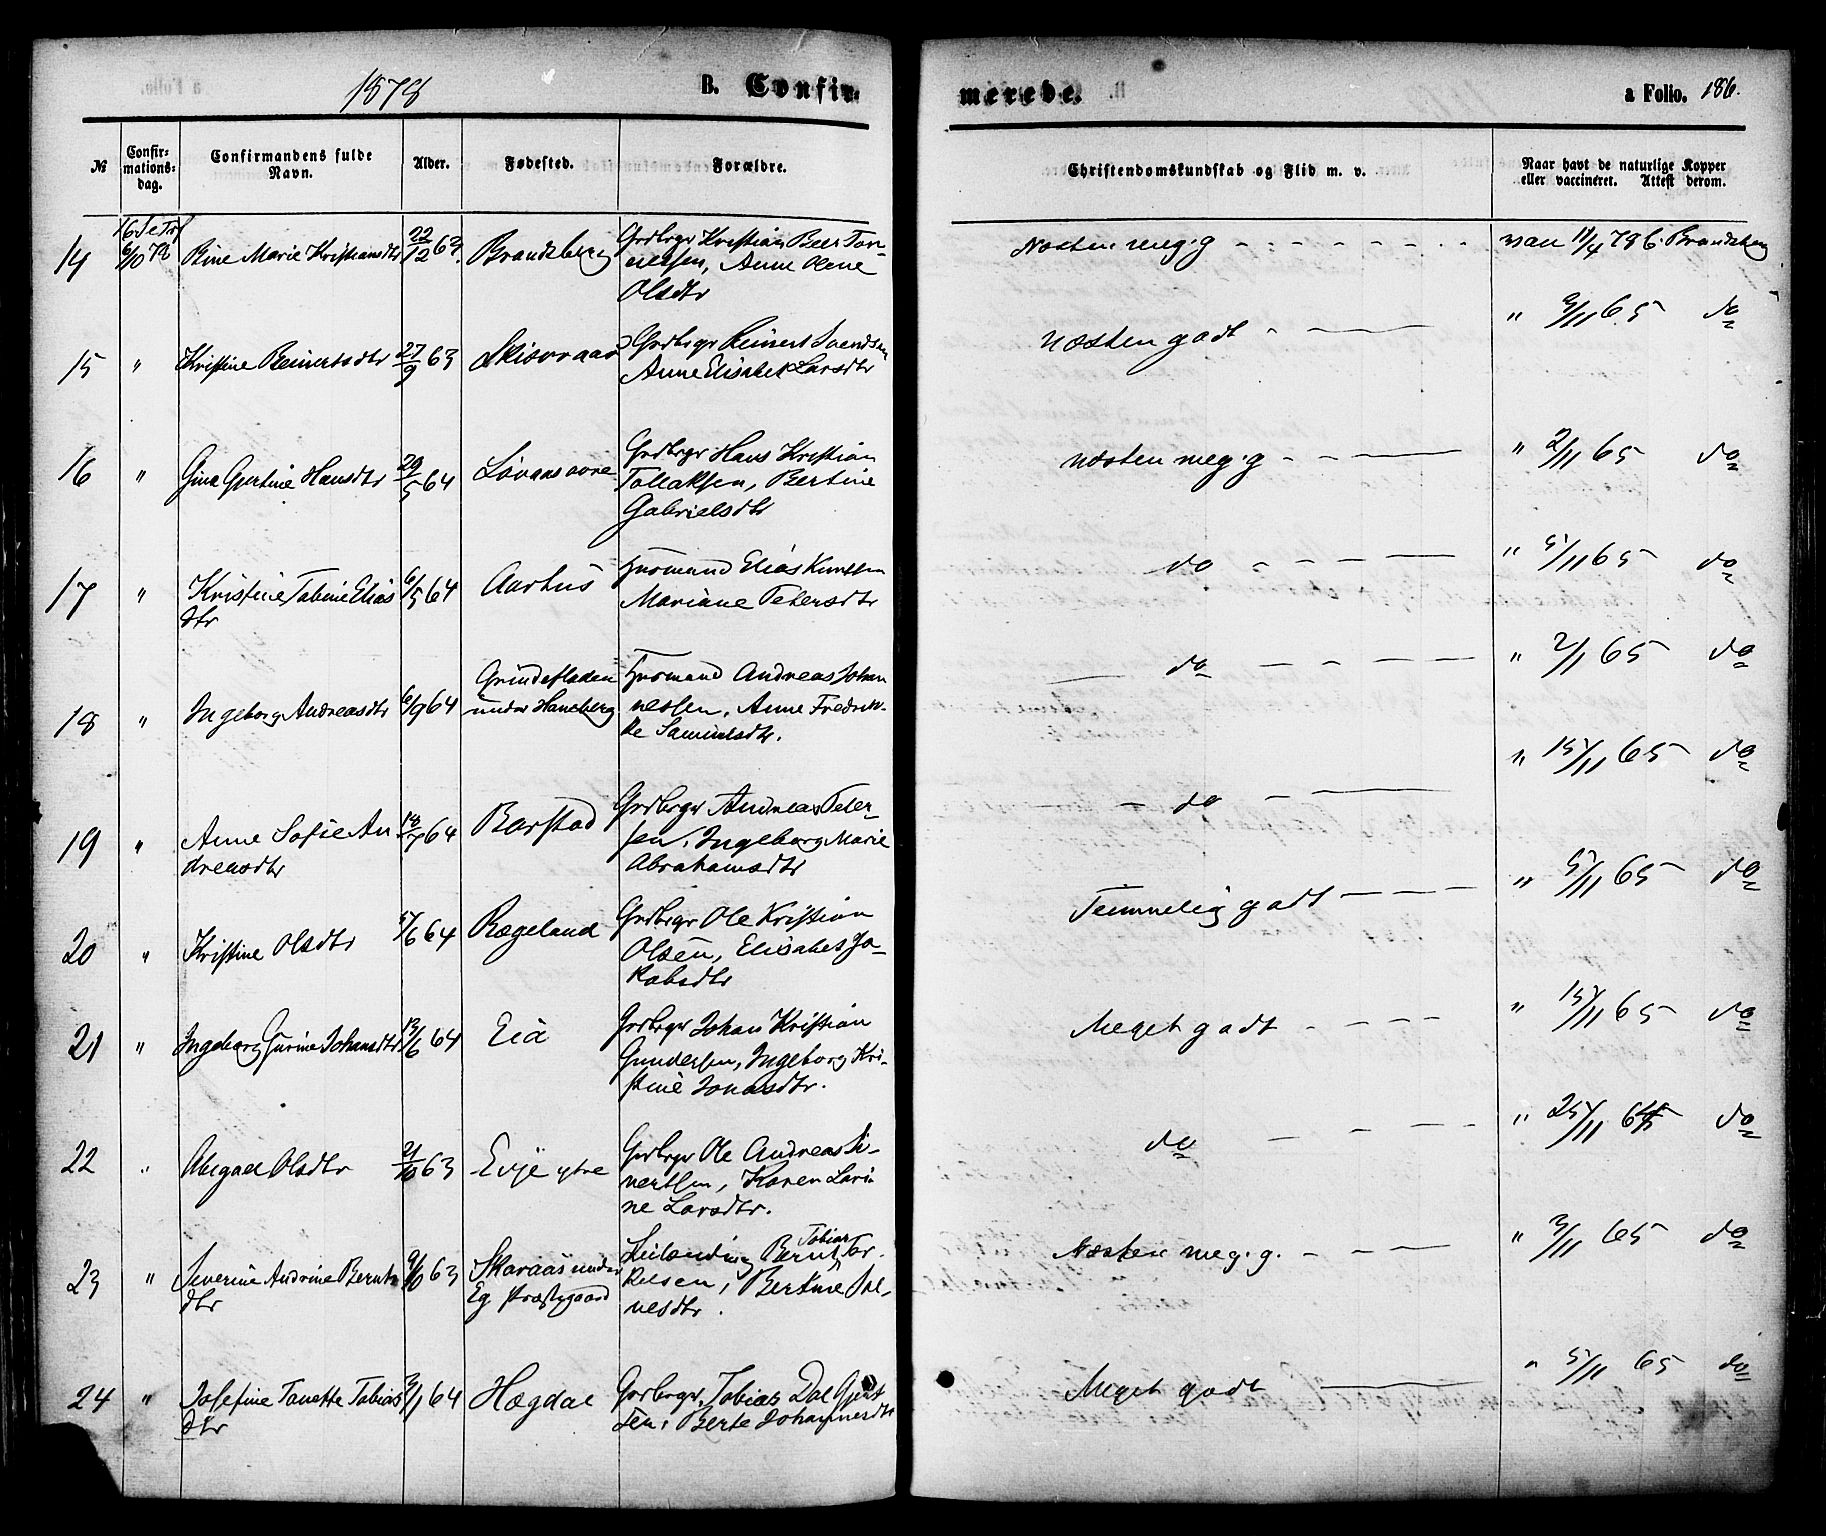 1878
B. Confir-
merede.
a Folio. 186.
№
Confir-
mations-
dag.
Confirmandens fulde
Navn.
Alder.
Fødested.
Forældre.
Christendomskundskab og Flid m. v.
Naar havt de naturlige Kopper
eller vaccineret. Attest derom.
14
6/10 78
Bine Marie Kristiansdtr
22/12 63.
Brandsberg
Grdbrgr Kristian Beer Tor-
Anne Olene
Olsdtr
Næsten meg. g
Brandsberg
15 "
Kristine Reinertsdtr
27/9 63
Grdbrgr Reinert Svendsen
Anne Elisabet Larsdtr
Næsten godt
" 9/11 65 do
16 "
Gina Gjertine Hansdtr
29/5 64
Grdbrgr Hans Kristian
Tollaksen, Bertine
Gabrielsdtr
Næsten meg. g
" 2/11 65 do
17 "
Kristine Tabine Elias
dtr
6/5 64
Aarhus
Husmand Elias Knutsen
Mariane Petersdtr
do
" 5/11 65 do
18 "
Ingeborg Andreasdtr
6/9 64
Grindefladen
under Haneberg
Husmand Andreas Johan
nessen, Anne Fredrik-
ke Samuelsdtr.
do
65 do
19 "
Anne Sofie An
dreasdtr
18/7 64
Barstad
Grdbrgr Andreas Peter-
sen, Ingeborg Marie
Abrahamsdtr
do
" 15/11 65 do
20 "
Kristine Olsdtr
5/6 64
Rægeland
Grdbrgr Ole Kristian
Olsen, Elisabet Ja-
kobsdtr
Temmelig godt
" 5/11 65 do
21 "
Ingeborg Gurine Johansdtr
13/6 64
Eia
Grdbrgr Johan Kristian
Gundersen, Ingeborg Kri-
stine Jonasdtr.
Meget godt
" 15/11 65 do
22 "
Abigael Olsdtr
21/10 63
Evje ytre
Grdbrgr Ole Andreas Si-
vertsen, Karen Lari
ne Larsdtr.
do
" 25/11 65 do
23 "
Severine Andrine Bernts
dtr
9/10 63
Skaraas under
Eg Præstegaard
Tobias
Bernt Tor-
kelsen, Bertine
Næsten meg. g.
" 3/11 65 do
24 "
Josefine Tanette Tobias
dtr
3/1 64
Hægdal
Grdbrgr Tobias Dal Gjert
sen, Berte Johannesdtr
Meget godt
" 5/11 65 do